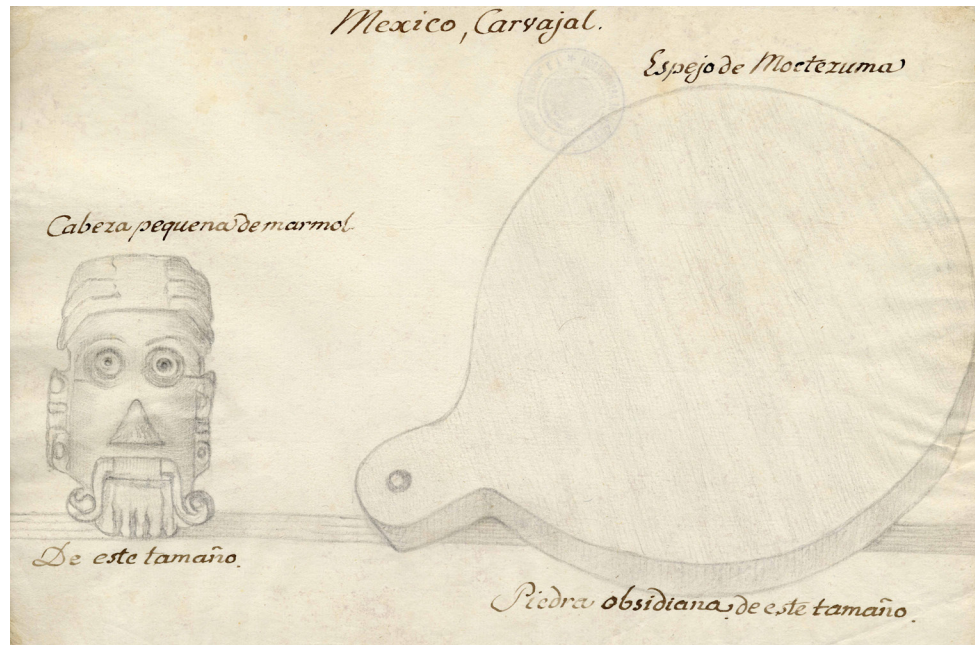 Mexico, Carvajal.
Espejo de Moctezuma
Cabeza pequena de marmol
De este tamaño.
Piedra obsidiana de este tamaño.